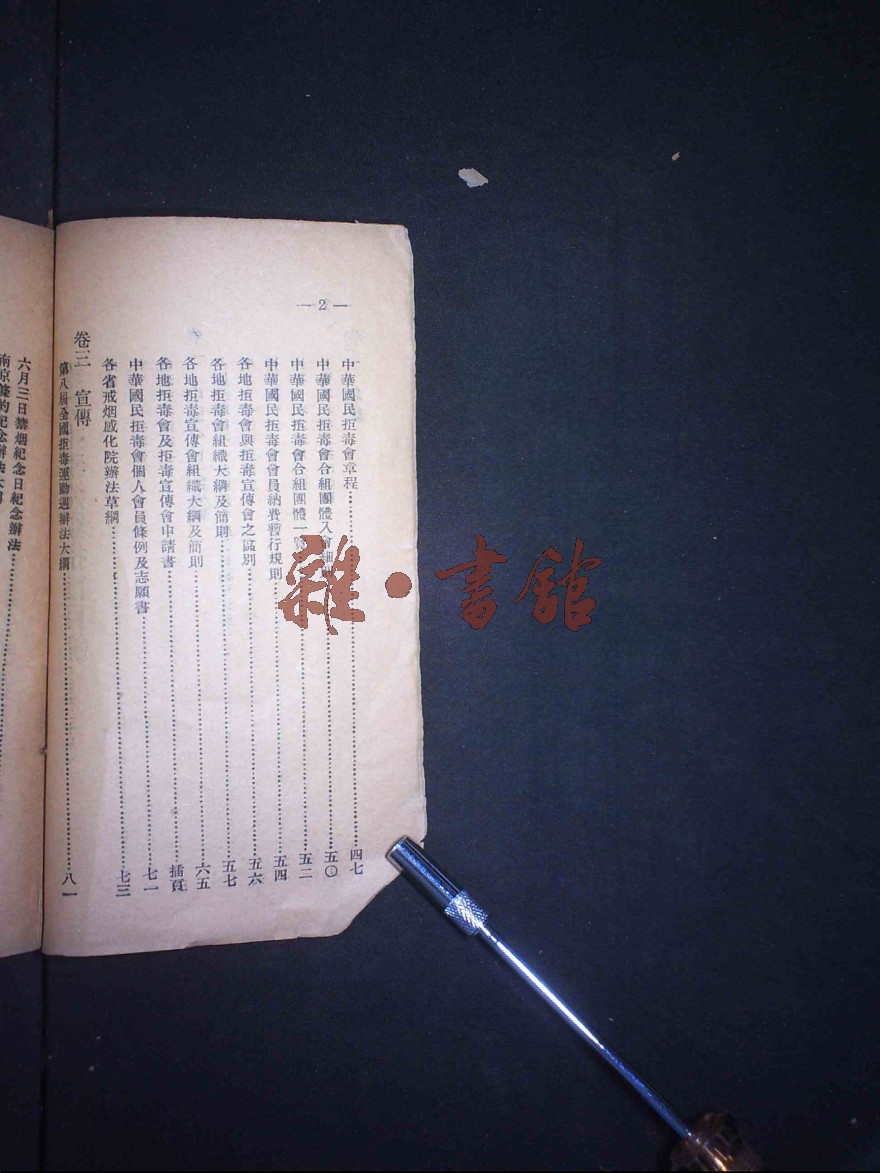 — 2 —
中華國民拒毒會章程 四七
中華國民拒毒會合組團體入會細 五〇
中華國民拒毒會合組團體一 五二
中華國民拒毒會會員納費暫行規則 五四
各地拒毒會與拒毒宣傳會之區別 五六
各地拒毒會組織大綱及簡則 五七
各地拒毒宣傳會組織大綱及簡則 六五
各地拒毒會及拒毒宣傳會申請書 插頁
中華國民拒毒會個人會員條例及志願書 七一
各省戒烟感化院辦法草綱 七三
卷三 宣傳
第八屆全國拒毒運動週辦法大綱 八一
六月三日禁烟紀念日紀念辦法
南京條約紀念辦法大
雜·書舘